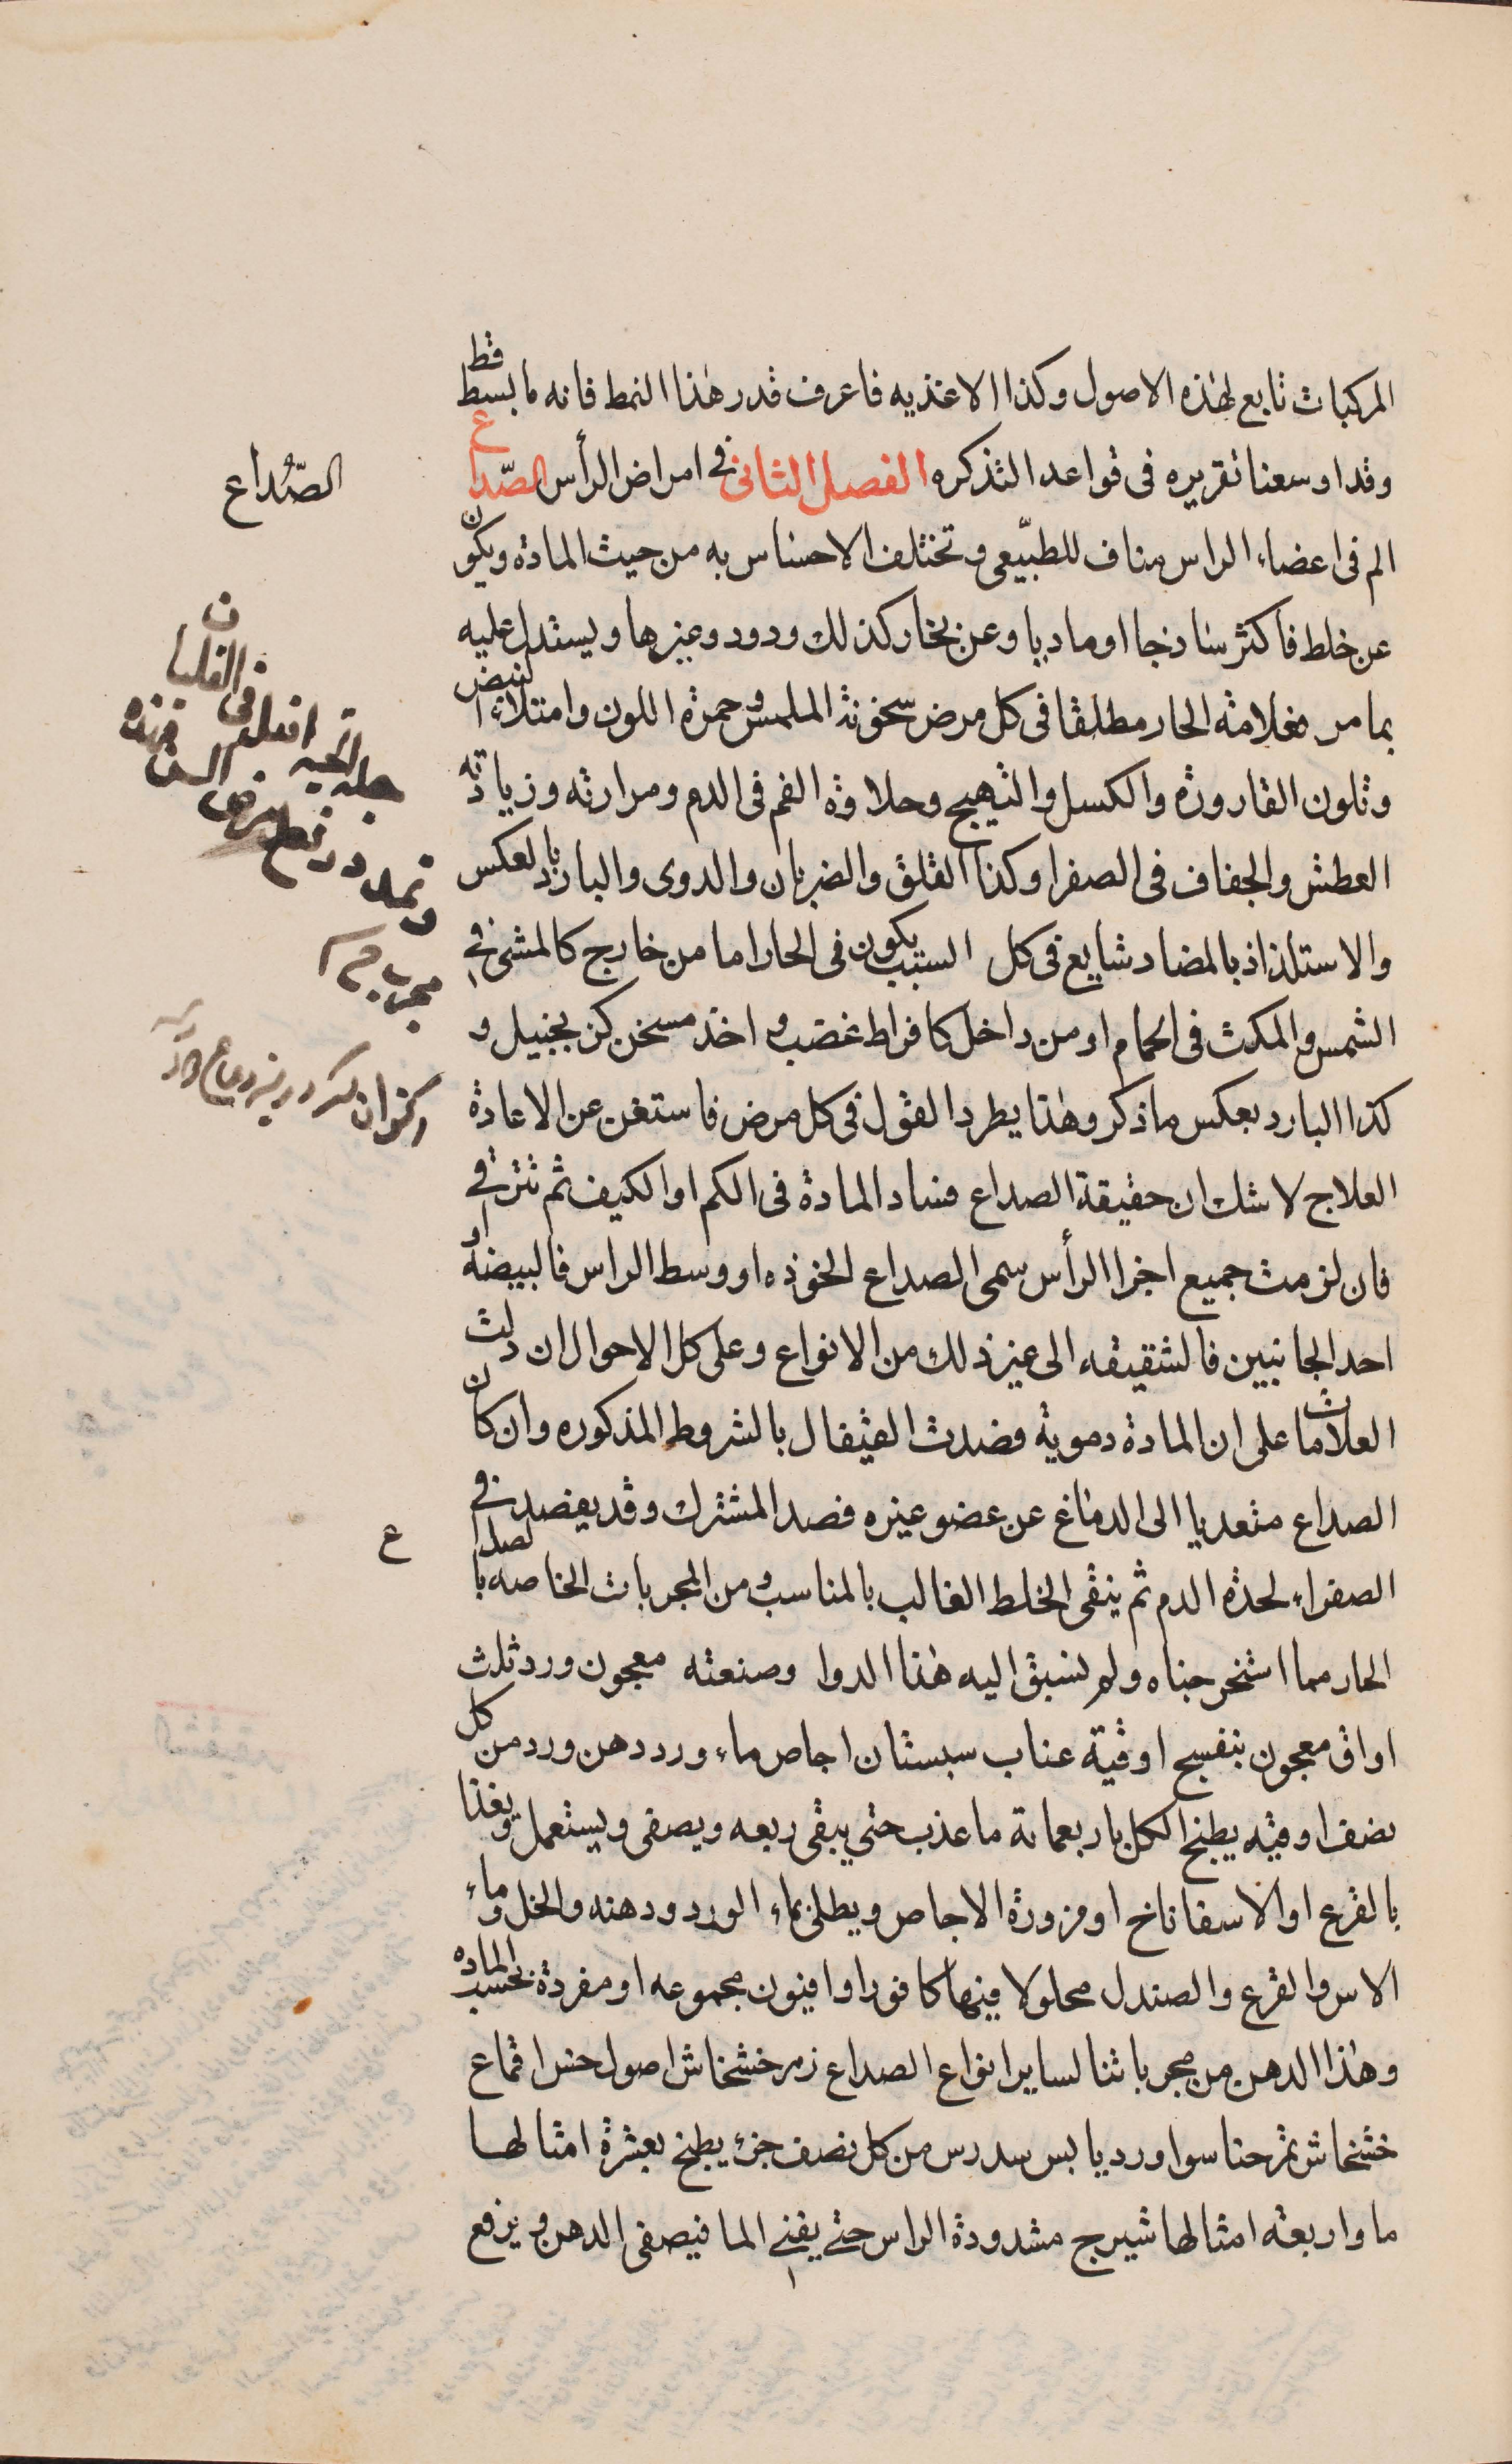 المركبات تابع لهذه الاصول وكذا الاغذيه فاعرف قدر هذا النمط فانه ما بسط قط
وقد اوسعنا تقريره فى قواعد التذكره الفصل الثانى فى امراض الرأس الصّداع
الم فى اعضاء الراس مناف للطبّيعى وتختلف الاحساس به من حيث المادة ويكون
عن خلط فاكثر ساذجا او ماديا وعن بخار كذلك ودود وغيرها ويستدل عليه
بما مر فعلامة الحار مطلقا فى كل مرض سخونة الملمس وحمرة اللون وامتلاء النبض
وتلون القارورة والكسل والتهيج وحلاوة الفم فى الدم ومرارته وزيادته
العطش والجفاف فى الصفرا وكذا القلق والضربان والدوى والبارد بالعكس
والاستلذاذ بالمضاد شايع فى كل السبب يكون فى الحار اما من خارج كالمشى فى
الشمس والمكث فى الحمام او من داخل كافراط غضب واخذ مسخن كزنجبيل و
كذا البارد بعكس ما ذكر وهذا يطرد القول فى كل مرض فاستغن عن الاعادة
العلاج لا شك ان حقيقة الصداع فساد المادة فى الكم او الكيف ثم تترقى
فان لزمت جميع اجزا الرأس سمى الصداع الخوذه او وسط الراس فالبيضة او
احد الجانبين فالشقيقه الى غير ذلك من الانواع وعلى كل الاحوال ان دلت
العلامات على ان المادة دموية فصدت القيفال بالشروط المذكوره وان كان
الصداع متعديا الى الدماغ عن عضو غيره فصد المشترك وقد يفصد فى
الصفراء لحدة الدم ثم ينقى الخلط الغالب بالمناسب ومن المجربات الخاصه بالصداع
الحار مما استخرجناه ولم نسبق اليه هذا الدوا وصنعته معجون ورد ثلث
اواق معجون بنفسج اوقية عناب سبستان اجاص ماء ورد دهن ورد من كل
نصف اوقيه يطبخ الكل باربعماية ما عذب حتى يبقى ربعه ويصفى ويستعمل ويغذا
بالقرع او الاسفاناخ او مزورة الاجاص ويطلى بماء الورد ودهنه والخل وماء
الاس والقرع والصندل محلولا فيها كافورا وافيون مجموعه او مفردة بحسب الماده
وهذا الدهن من مجرباتنا لساير انواع الصداع زهر خشخاش اصول خس اقماع
خشخاش ثمر حنا سوا ورد يابس سدر اس من كل نصف جزء يطبخ بعشرة امثالها
ما واربعة امثالها شيرج مشدودة الراس حتى يفنى الما فيصفى الدهن ويرفع
الصّداع